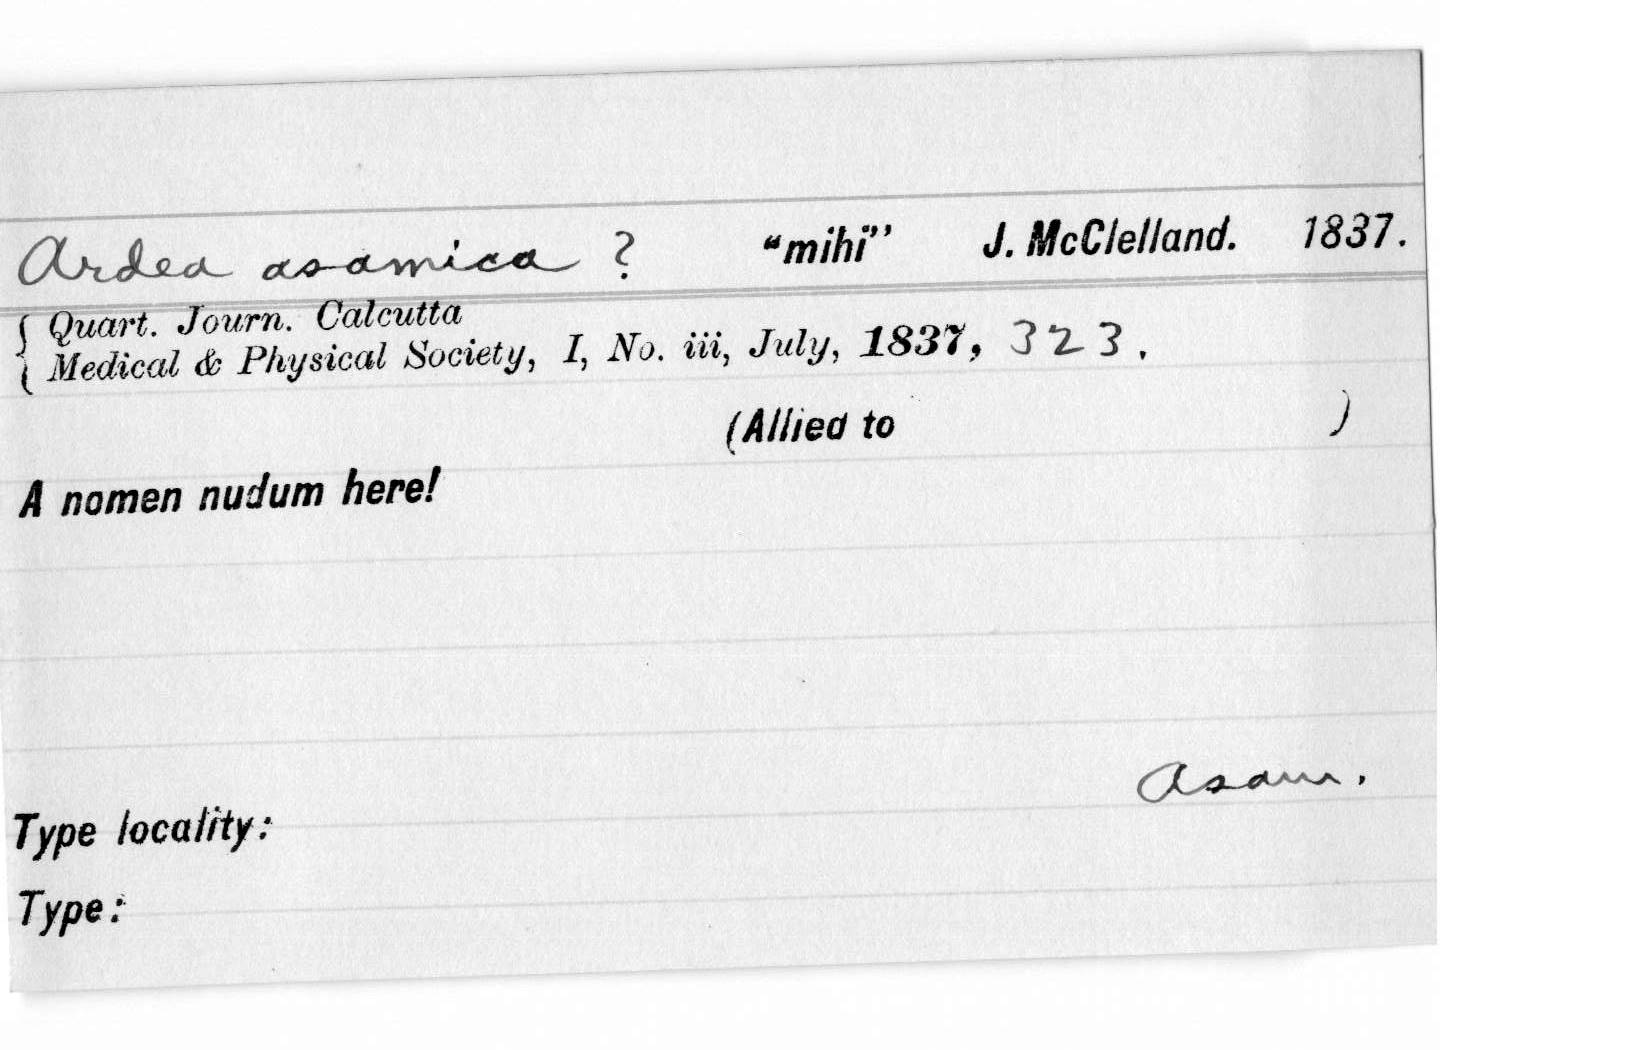 Ardea asamica ? “mihi” J. McClelland. 1837.
Quart. Journ. Calcutta
Medical & Physical Society, I, No. iii, July, 1837, 323.
(Allied to )
A nomen nudum here!
Asam.
Type locality:
Type: